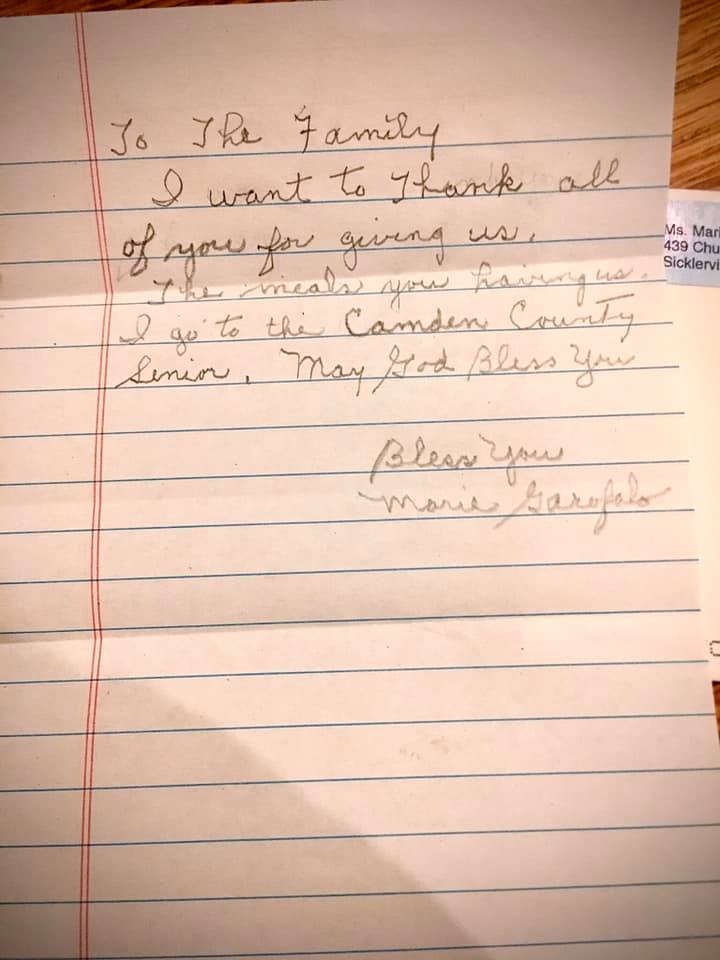 To The Family
I want to Thank all
of you for giving us.
The meals you having us.
I go to the Camden County
Senior. May God Bless You
Bless You
Marie Garofalo
Ms. Mari
439 Chu
Sicklervi